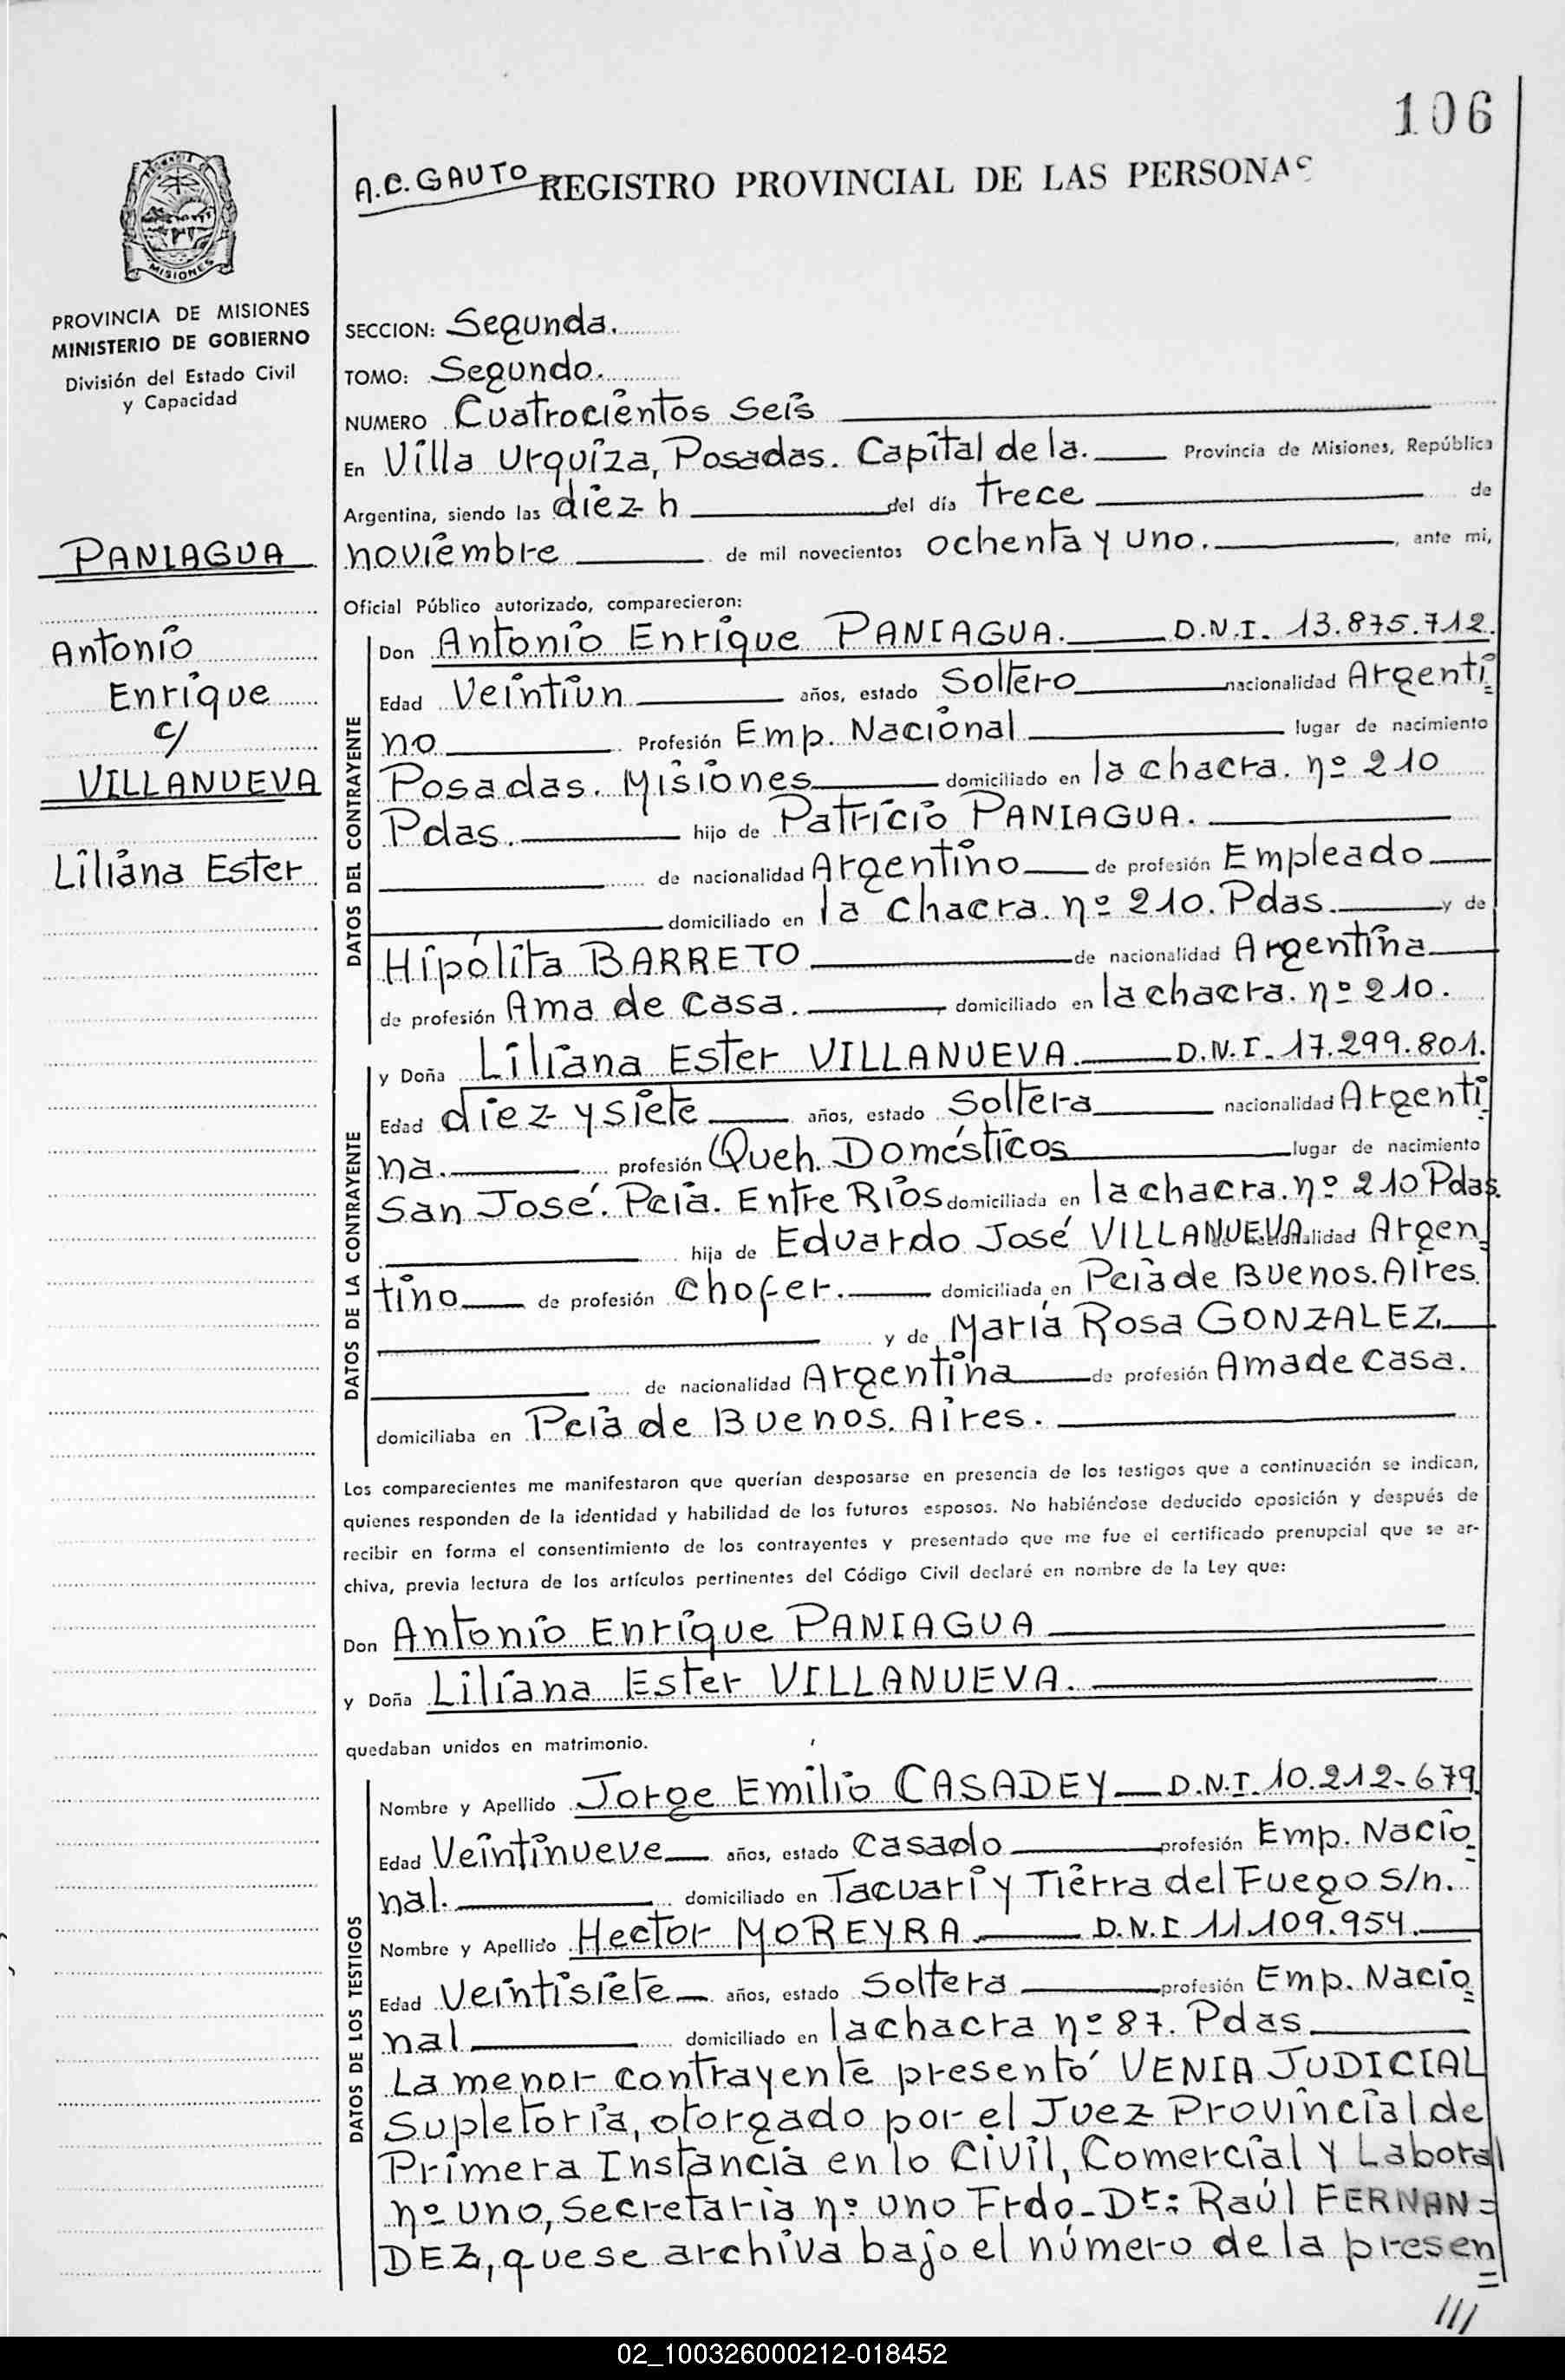 106
A.C. GAUTO
REGISTRO PROVINCIAL DE LAS PERSONAS
MISIONES
PROVINCIA DE MISIONES
MINISTERIO DE GOBIERNO
División del Estado Civil
y Capacidad
PANIAGUA
Antonio
Enrique
c/
VILLANUEVA
Liliana Ester
SECCION: Segunda.
TOMO: Segundo.
NUMERO Cuatrocientos Seis
En Villa Urquiza, Posadas. Capital de la. Provincia de Misiones, República
Argentina, siendo las diez h del día trece de
noviembre de mil novecientos ochenta y uno. , ante mi,
Oficial Público autorizado, comparecieron:
DATOS DEL CONTRAYENTE
Don Antonio Enrique PANIAGUA. D.N.I. 13.875.712.
Edad Veintiun años, estado Soltero nacionalidad Argenti=
no Profesión Emp. Nacional lugar de nacimiento
Posadas. Misiones domiciliado en la chacra. nº 210
Pdas. hijo de Patricio PANIAGUA.
de nacionalidad Argentino de profesión Empleado
domiciliado en la chacra. nº 210. Pdas. y de
Hipólita BARRETO de nacionalidad Argentina
de profesión Ama de casa. , domiciliado en la chacra. nº 210.
DATOS DE LA CONTRAYENTE
y Doña Liliana Ester VILLANUEVA. D.N.I. 17.299.801.
Edad diez y siete años, estado Soltera nacionalidad Argenti
na. profesión Queh. Domésticos lugar de nacimiento
San José. Pcia. Entre Rios domiciliada en la chacra. nº 210 Pdas.
hija de Eduardo José VILLANUEVA de nacionalidad Argen=
tino de profesión chofer. domiciliada en Pcia de Buenos. Aires.
y de María Rosa GONZALEZ.
de nacionalidad Argentina de profesión Ama de casa.
domiciliaba en Pcia de Buenos. Aires.
Los comparecientes me manifestaron que querían desposarse en presencia de los testigos que a continuación se indican,
quienes responden de la identidad y habilidad de los futuros esposos. No habiéndose deducido oposición y después de
recibir en forma el consentimiento de los contrayentes y presentado que me fue el certificado prenupcial que se ar-
chiva, previa lectura de los artículos pertinentes del Código Civil declaré en nombre de la Ley que:
Don Antonio Enrique PANIAGUA
y Doña Liliana Ester VILLANUEVA.
quedaban unidos en matrimonio.
DATOS DE LOS TESTIGOS
Nombre y Apellido Jorge Emilio CASADEY D.N.I. 10.212-679
Edad Veintinueve años, estado Casado profesión Emp. Nacio=
nal. domiciliado en Tacuari y Tierra del Fuego s/n.
Nombre y Apellido Hector MOREYRA. D.N.I 11.109.954.
Edad Veintisiete años, estado Soltera profesión Emp. Nacio=
nal domiciliado en la chacra nº 87. Pdas
La menor contrayente presentó VENIA JUDICIAL
Supletoria, otorgado por el Juez Provincial de
Primera Instancia en lo Civil, Comercial y Laboral
nº uno, Secretaria nº uno Frdo_ Dr.: Raúl FERNAN=
DEZ, que se archiva bajo el número de la presen=
///
02_100326000212-018452